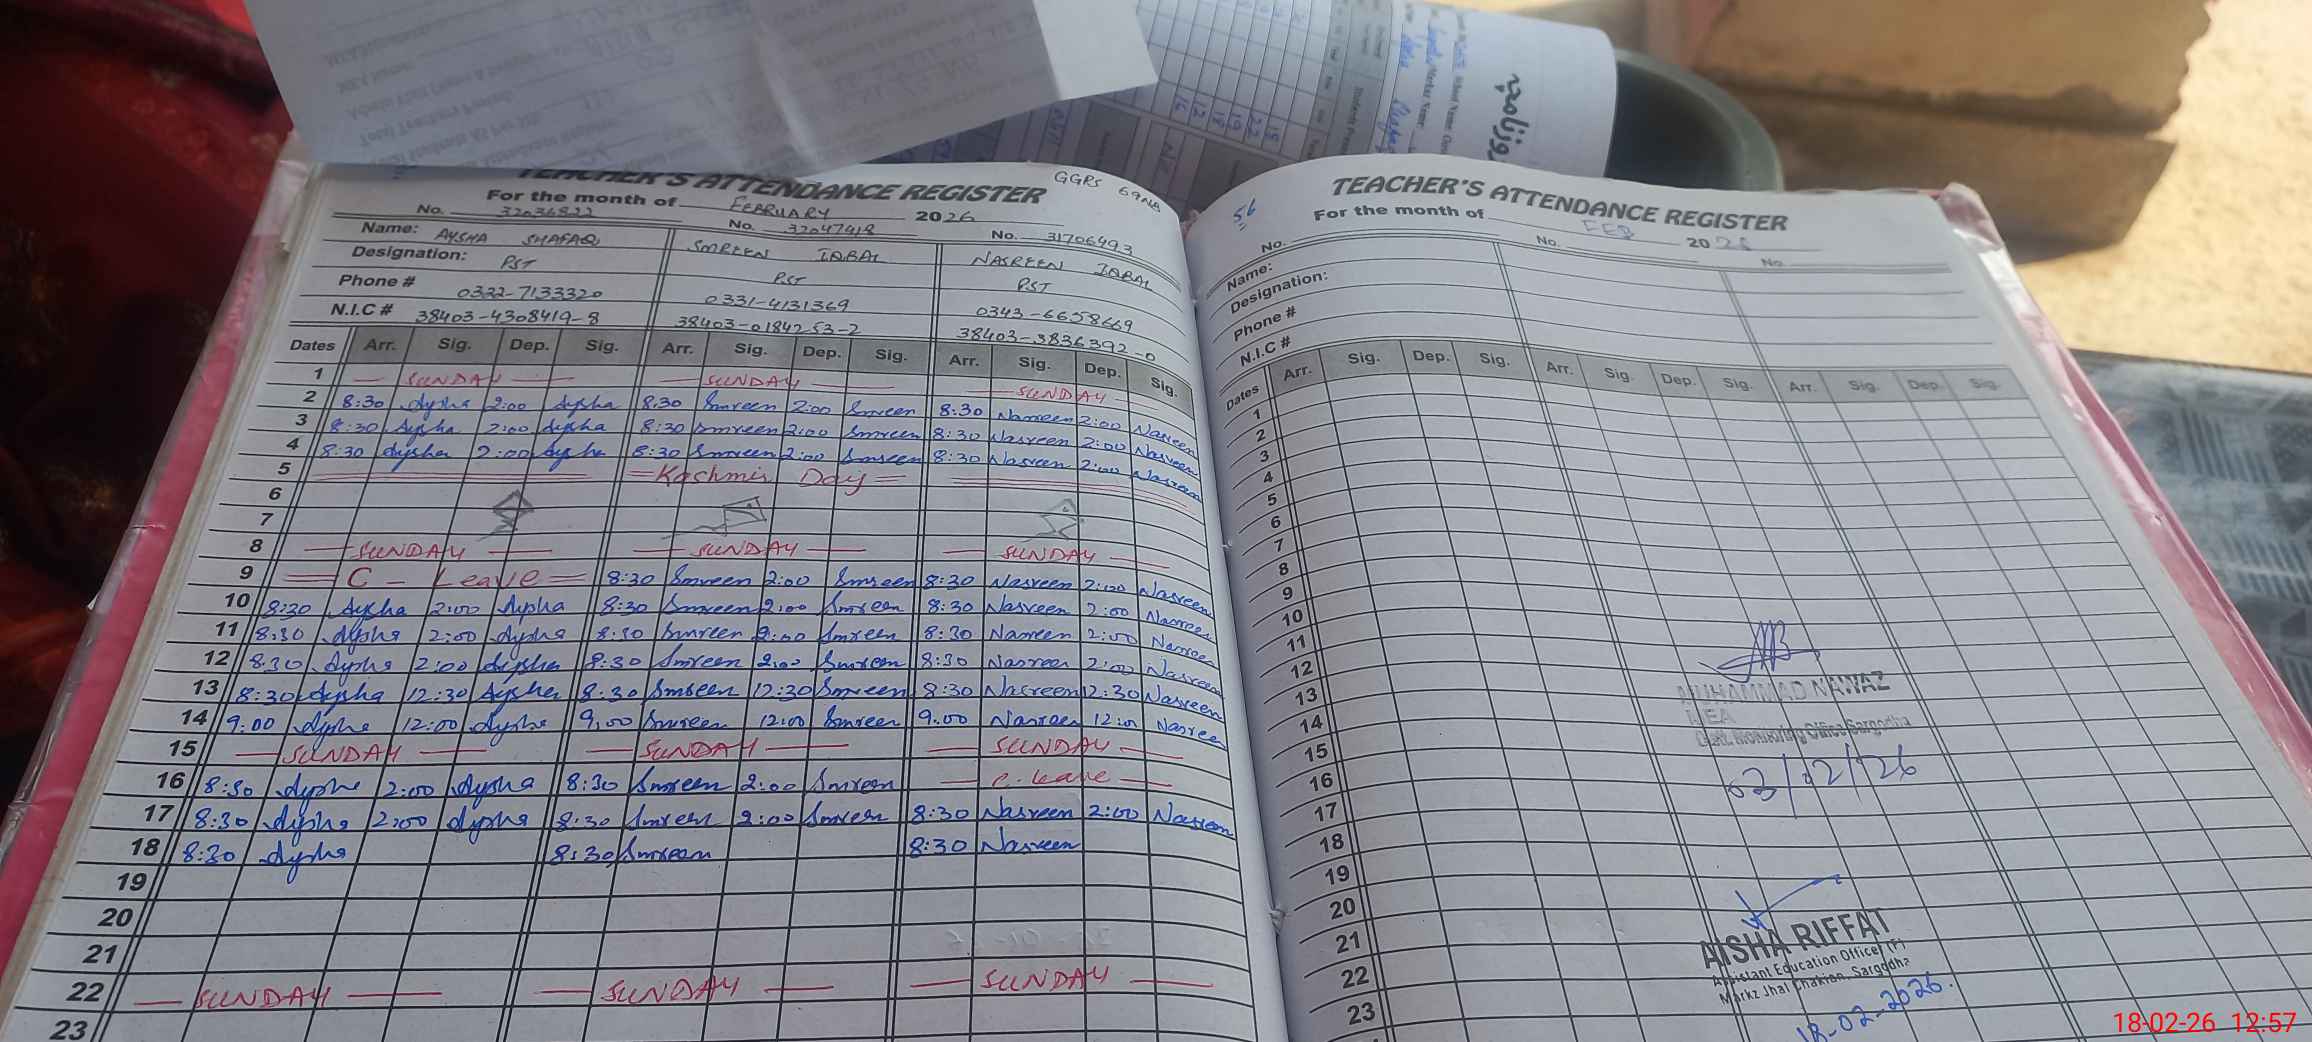 TEACHER'S ATTENDANCE REGISTER GGRS 69NB
For the month of FEBRUARY 2026
No. 32036822 No. 32047918 No. 31706493
Name: AYSHA SHAFAQ SMREEN IQBAL NASREEN IQBAL
Designation: PST PST PST
Phone # 0322-7133320 0331-4131369 0343-6658669
N.I.C # 38403-4308419-8 38403-0184253-2 38403-3836392-0
Dates Arr. Sig. Dep. Sig. Arr. Sig. Dep. Sig. Arr. Sig. Dep. Sig.
1 SUNDAY SUNDAY SUNDAY
2 8:30 Aysha 2:00 Aysha 8:30 Smreen 2:00 Smreen 8:30 Nasreen 2:00 Nasreen
3 8:30 Aysha 2:00 Aysha 8:30 Smreen 2:00 Smreen 8:30 Nasreen 2:00 Nasreen
4 8:30 Aysha 2:00 Aysha 8:30 Smreen 2:00 Smreen 8:30 Nasreen 2:00 Nasreen
5 Kashmir Day
6
7
8 SUNDAY SUNDAY SUNDAY
9 C - Leave 8:30 Smreen 2:00 Smreen 8:30 Nasreen 2:00 Nasreen
10 8:30 Aysha 2:00 Aysha 8:30 Smreen 2:00 Smreen 8:30 Nasreen 2:00 Nasreen
11 8:30 Aysha 2:00 Aysha 8:30 Smreen 2:00 Smreen 8:30 Nasreen 2:00 Nasreen
12 8:30 Aysha 2:00 Aysha 8:30 Smreen 2:00 Smreen 8:30 Nasreen 2:00 Nasreen
13 8:30 Aysha 12:30 Aysha 8:30 Smreen 12:30 Smreen 8:30 Nasreen 12:30 Nasreen
14 9:00 Aysha 12:00 Aysha 9:00 Smreen 12:00 Smreen 9:00 Nasreen 12:00 Nasreen
15 SUNDAY SUNDAY SUNDAY
16 8:30 Aysha 2:00 Aysha 8:30 Smreen 2:00 Smreen c. leave
17 8:30 Aysha 2:00 Aysha 8:30 Smreen 2:00 Smreen 8:30 Nasreen 2:00 Nasreen
18 8:30 Aysha 8:30 Smreen 8:30 Nasreen
19
20
21
22 SUNDAY SUNDAY SUNDAY
23
56
TEACHER'S ATTENDANCE REGISTER
For the month of FEB 2026
No. No. No.
Name:
Designation:
Phone #
N.I.C #
Dates Arr. Sig. Dep. Sig. Arr. Sig. Dep. Sig. Arr. Sig. Dep. Sig.
1
2
3
4
5
6
7
8
9
10
11
12
13
14
15
16
17
18
19
20
21
22
23
MUHAMMAD NAWAZ
MEA
Distt. Monitoring Office Sargodha
03/02/26
AISHA RIFFAT
Assistant Education Officer (F)
Markz Jhal Chakian, Sargodha
18-02-2026.
18-02-26 12:57